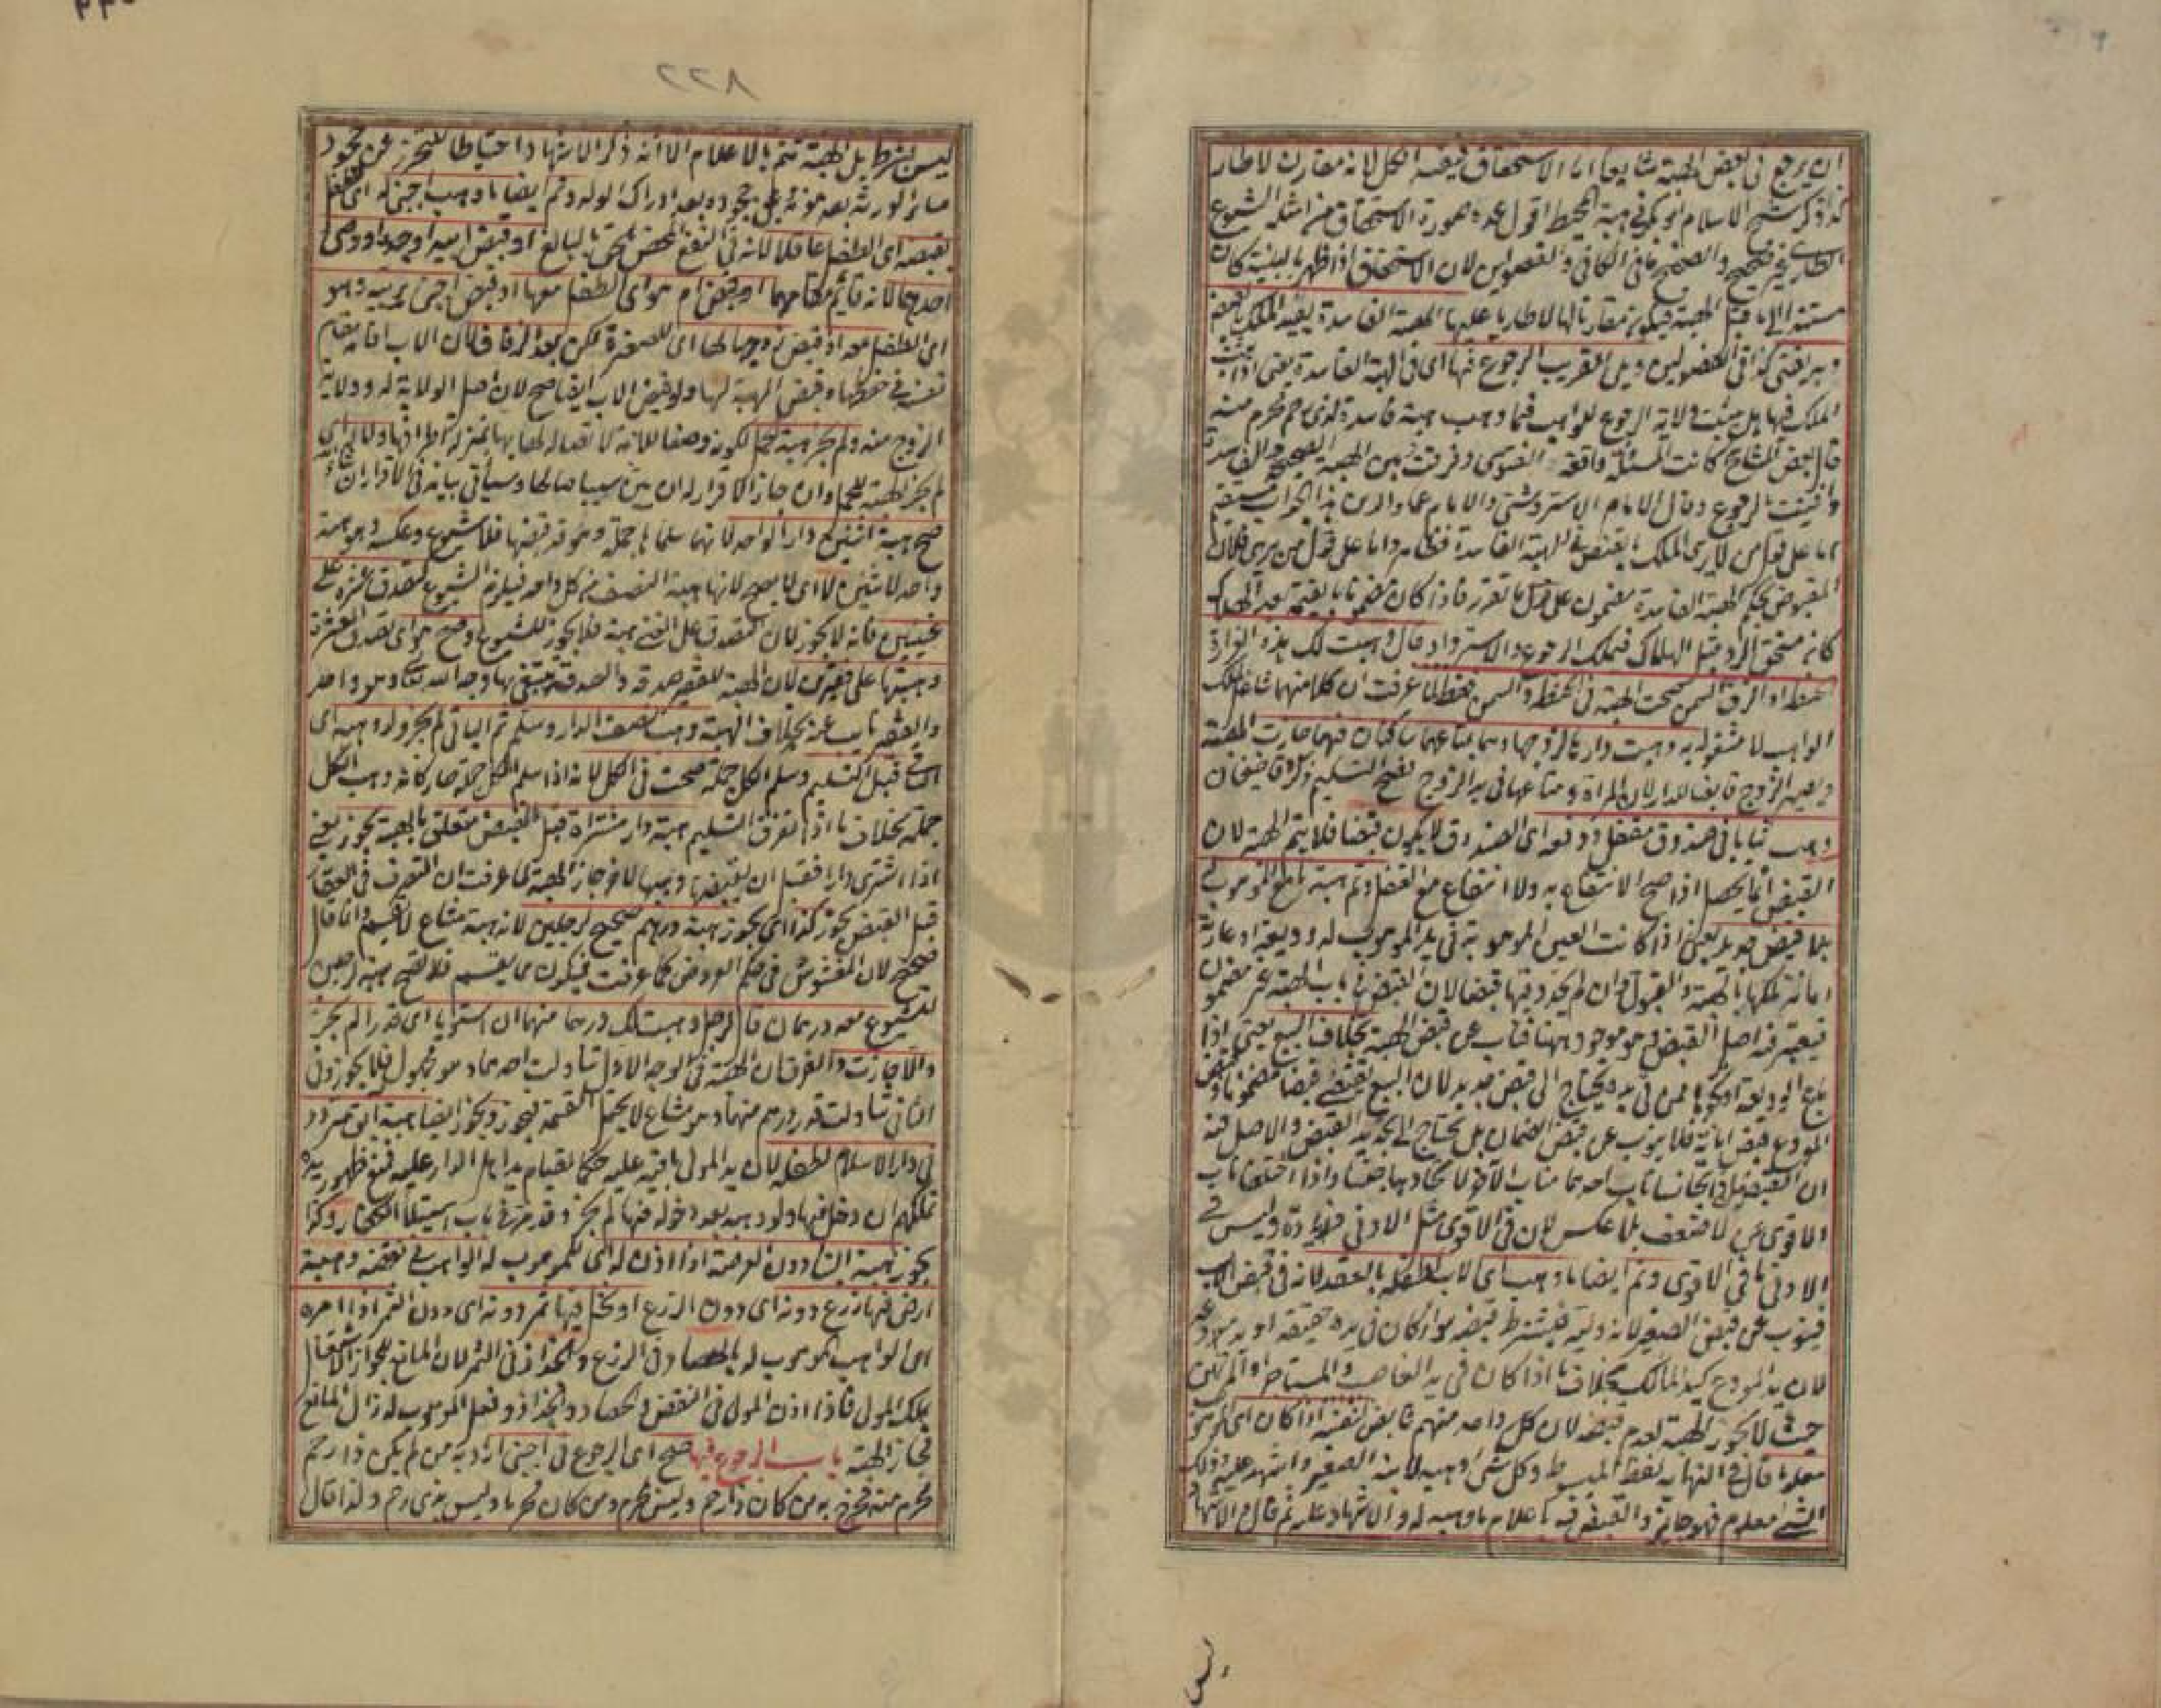 ان يرجع في بعض الهبة شايعا اما الاستحقاق فيفسد الكل لانه مقارن لا طار
كذا ذكر شيخ الاسلام ابو بكر في هبة المحيط اقول عده صورة الاستحقاق من امثلة الشيوع
الطاري غير صحيح والصحيح ما في الكافي والفصولين لان الاستحقاق اذا ظهر بالبينة كان
مستندا الى ما قبل الهبة فيكون مقارنا لها لا طاريا عليها الهبة الفاسدة يفيد الملك بالقبض
وبه يفتى كذا في الفصولين وبل القريب الرجوع فيها اي في الهبة الفاسدة يعني اذا ثبت
الملك فيها هل يثبت ولاية الرجوع للواهب فيما وهب هبة فاسدة لذي رحم محرم منه
قال بعض المشايخ كانت المسئلة واقعة الفتوى وفرقت بين الهبة الصحيحة والفاسدة
وافتيت بالرجوع وقال الامام الاستروشني والامام عماد الدين هذا الجواب مستقيم
اما على قول من لا يرى الملك بالقبض في الهبة الفاسدة فظاهر واما على قول من يرى فلان
المقبوض بحكم الهبة الفاسدة مضمون على ما تقرر فاذا كان مضمونا بالقيمة بعد الهلاك
كان مستحق الرد قبل الهلاك فيملك الرجوع والاسترداد قال وهبت لك هذه الغرارة
الحنطة او الزق السمن صحت الهبة في الحنطة والسمن فقط لما عرفت ان كلا منهما شاغل لملك
الواهب لا مشغول به وهبت دارها لزوجها وهما بمتاعهما ساكنان فيها جازت الهبة
ويصير الزوج قابضا للدار لان المراة ومتاعها في يد الزوج فصح التسليم ذكره قاضيخان
وهب ثيابا في صندوق مقفل ودفعه اي الصندوق لا يكون قبضا فلا يتم الهبة لان
القبض انما يحصل اذا صح الانتفاع به ولا انتفاع مع القفل وتم هبة ما مع الموهوب له
بلا قبض جديد يعني اذا كانت العين الموهوبة في يد الموهوب له وديعة او عارية
امانة ملكها بالهبة والقبول وان لم يجدد فيها قبضا لان القبض في باب الهبة غير مضمون
فيعتبر فيه اصل القبض وهو موجود ههنا فناب عن قبض الهبة بخلاف البيع يعني اذا
باع الوديعة او نحوها ممن في يده يحتاج الى قبض جديد لان البيع يقتضي قبضا مضمونا وقبض
المودع قبض امانة فلا ينوب عن قبض الضمان بل يحتاج الى تجديد القبض والاصل فيه
ان القبضين اذا تجانسا ناب احدهما مناب الآخر لاتحادهما جنسا واذا اختلفا ناب
الاقوى عن الاضعف بلا عكس لان في الاقوى مثل الادنى وزيادة وليس في
الادنى ما في الاقوى وتم ايضا ما وهب اي الاب لطفله بالعقد لانه في قبض الاب
فينوب عن قبض الصغير لانه وليه فيشترط قبضه سواء كان في يده حقيقة او يد مودعه
لان يد المودع كيد المالك بخلاف ما اذا كان في يد الغاصب والمستاجر او المرتهن
حيث لا يجوز الهبة لعدم قبضه لان كل واحد منهم قابض لنفسه اذا كان اي الموهوب
معلوما قال في النهاية لفظ المبسوط وكل شيء وهبه لابنه الصغير واشهد عليه وذلك
الشيء معلوم فهو جائز والقبض فيه باعلام ما وهبه له والاشهاد عليه ثم قال والاشهاد
ليس
٢٢٨
ليس بشرط بل الهبة تتم بالاعلام الا انه ذكر الاشهاد احتياطا للتحرز عن جحود
سائر الورثة بعد موته وعن جحوده بعد ادراك الولد وتم ايضا ما وهب اجنبي له اي للطفل
بقبضه اي الطفل عاقلا لانه في النفع المحض ملحق بالبالغ او قبض ابيه او جده او وصي
احدهما لانه قائم مقامهما او قبض ام هو اي الطفل معها او قبض اجنبي يربيه وهو
اي الطفل معه او قبض زوجها لها اي للصغيرة لكن بعد الزفاف لان الاب اقامه مقام
نفسه في حفظها وقبض الهبة لها ولو قبض الاب ايضا صح لان اصل الولاية له وولاية
الزوج منه ولم يجز هبة حمل لكونه وصفا للامة لاتصاله بها بمنزلة اطرافها ولا له اي
لم يجز الهبة للحمل وان جاز الاقرار له ان بين سببا صالحا وسيأتي بيانه في الاقرار ان شاء الله
صح هبة اثنين دارا لواحد لانهما سلماها جملة وهو قد قبضها فلا شيوع وعكسه وهو هبة
واحد لاثنين لا اي لا يصح لانها هبة النصف من كل واحد فيلزم الشيوع كتصدق عشرة على
غنيين فانه لا يجوز لان التصدق على الغني هبة فلا يجوز للشيوع وصح هو اي تصدق العشرة
وهبتها على فقيرين لان الهبة للفقير صدقة والصدقة يبتغى بها وجه الله تعالى وهو واحد
والفقير نايب عنه بخلاف الهبة وهب نصف الدار وسلم ثم الباقي لم يجز ولو وهبه اي
الباقي قبل التسليم وسلم الكل جملة صحت في الكل لانه اذا سلم الكل جملة صار كانه وهب الكل
جملة بخلاف ما اذا تفرق التسليم هبة دار مشتراة قبل القبض متعلق بالهبة يجوز يعني
اذا اشترى دارا فقبل ان يقبضها وهبها لآخر جاز الهبة لما عرفت ان التصرف في العقار
قبل القبض يجوز كذا اي يجوز هبة درهم صحيح لرجلين لانه هبة مشاع لا يقسم وانما قال
صحيح لان المغشوش في حكم العروض كما عرفت فيكون مما يقسم فلا تصح هبته لرجلين
للشيوع معه درهمان قال لرجل وهبت لك درهما منهما ان استويا اي قدرا لم يجز
والا جازت والفرق ان الهبة في الوجه الاول تناولت احدهما وهو مجهول فلا يجوز وفي
الثاني تناولت قدر درهم منهما وهو مشاع لا يحتمل القسمة فيجوز ويجوز ايضا هبة آبق متردد
في دار الاسلام لطفله لان يد المولى باقية عليه حكما لقيام يد اهل الدار عليه فمنع ظهور يده
تملكهم ان دخل فيها ولو وهبه بعد دخوله فيها لم يجز وقد مر في باب استيلاء الكفار وكذا
يجوز هبة البناء دون العرصة اذا اذن له اي للموهوب له الواهب في نقضه وهبة
ارض فيها زرع دونه اي دون الزرع او نخل فيها ثمر دونه اي دون الثمر اذا امره
اي الواهب الموهوب له بالحصاد في الزرع والجذاذ في الثمر لان المانع للجواز الاشتغال
بملك المولى فاذا اذن المولى في النقض والحصاد والجذاذ وفعل الموهوب له زال المانع
فجاز الهبة باب الرجوع فيها صح اي الرجوع في اجنبي اراد به من لم يكن ذا رحم
محرم منه فخرج به من كان ذا رحم وليس محرم ومن كان محرما وليس بذي رحم ولذا قال